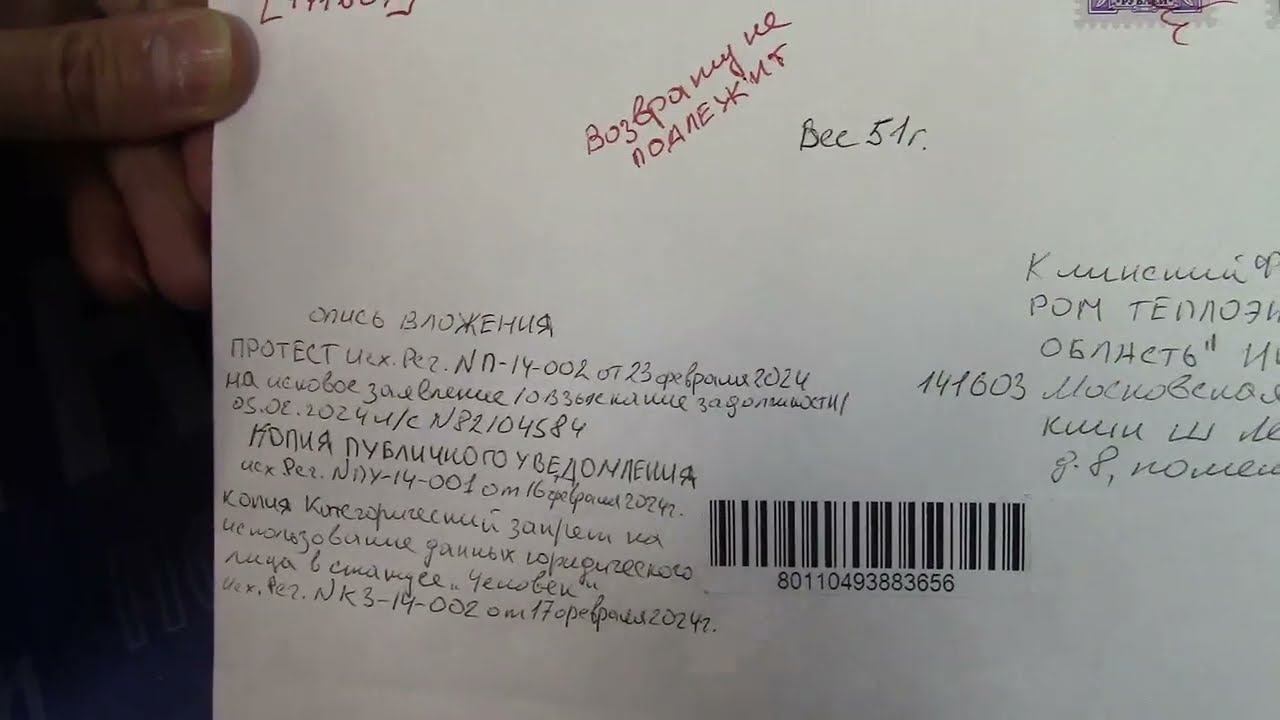 Возврату не
ПОДЛЕЖИТ
Вес 51г.
ОПИСЬ ВЛОЖЕНИЯ
ПРОТЕСТ Исх. Рег. N П-14-002 от 23 февраля 2024
на исковое заявление /о взыскание задолжности/
05.02.2024 Л/С N82104584
КОПИЯ ПУБЛИЧНОГО УВЕДОМЛЕНИЯ
исх. Рег. N ПУ-14-001 от 16 февраля 2024г.
копия Категорический запрет на
использование данных юридического
лица в статусе „Человек"
исх. Рег. N КЗ-14-002 от 17 февраля 2024г.
Клинский Ф
РОМ ТЕПЛОЭН
ОБЛАСТЬ"
141603 Московская
д. 8, помещ
80110493883656